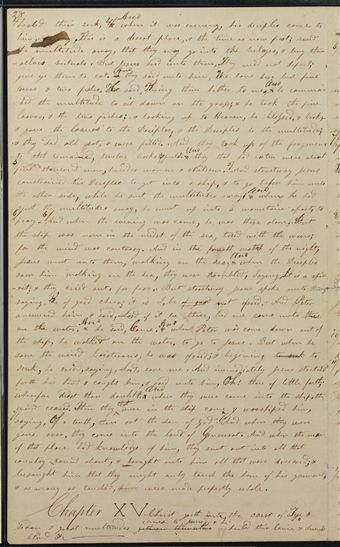 healed their sick, & when it was evening, his deciples came to
him, This is a desert place, & the time is now past, send
the multitude away, that they may go into the vilages, & buy them
selves victuals. But Jesus said unto them, They need not depart,
give ye them to eat & they said unto him, We have here but five
loaves & two fishes, He said, Bring them hither to me & he comman
ded the multitude to sit down on the grass; & he took the five
loaves, & the two fishes; & looking up to Heaven, he blessed, & brake,
& gave the loaves to the Deciples, & the Deciples to the multitude,
& they did all eat, & were filled. And they took up of the fragments
And they that had eaten were about
five thousand men, besides women & children. And straitway Jesus
constrained his Deciples to get into a ship, & to go before him unto
the other side, while he sent the multitudes away, And when he had
sent the multitudes away, he went up into a mountain apart, to
pray & when the evening was come, he was there alone; But
the ship was now in the midst of the sea, tossed with the waves;
for the wind was contrary. And in the fourth watch of the night,
Jesus went unto them, walking on the sea; And when the Deciples
saw him walking on the sea, they were troubled, saying, It is a spir
it; & they cried out, for fear. But straitway Jesus spoke unto them,
saying, Be of good cheer; it is I, be not afraid. And Peter
answered him & said, Lord, if it be thou, bid me come unto thee
on the water, And he said, Come, And when Peter was come down out of
the ship, he walked on the water, to go to Jesus. But when he
saw the wind boisterous, he was afraid; & beginning to
sink, he cried, saying, Lord, save me. And immediately Jesus stretched
forth his hand & caught him, & said unto him, O thou of little faith,
wherefore didst thou doubt, And when they were come into the ship, the
wind ceased. Then they that were in the ship came & worshiped him,
saying, Of a truth, thou art the Son of god. And when they were
gone over, they came into the land of And when the men
of that place had knowledge of him, they sent out into all that
country round about, & brought unto him all that were diseased; &
besought him that they might only touch the hem of his garment,
& as many as touched, were made perfectly whole.
Chapter XV Christ goeth into the coast of Tyre &
Sidon & great multitudes